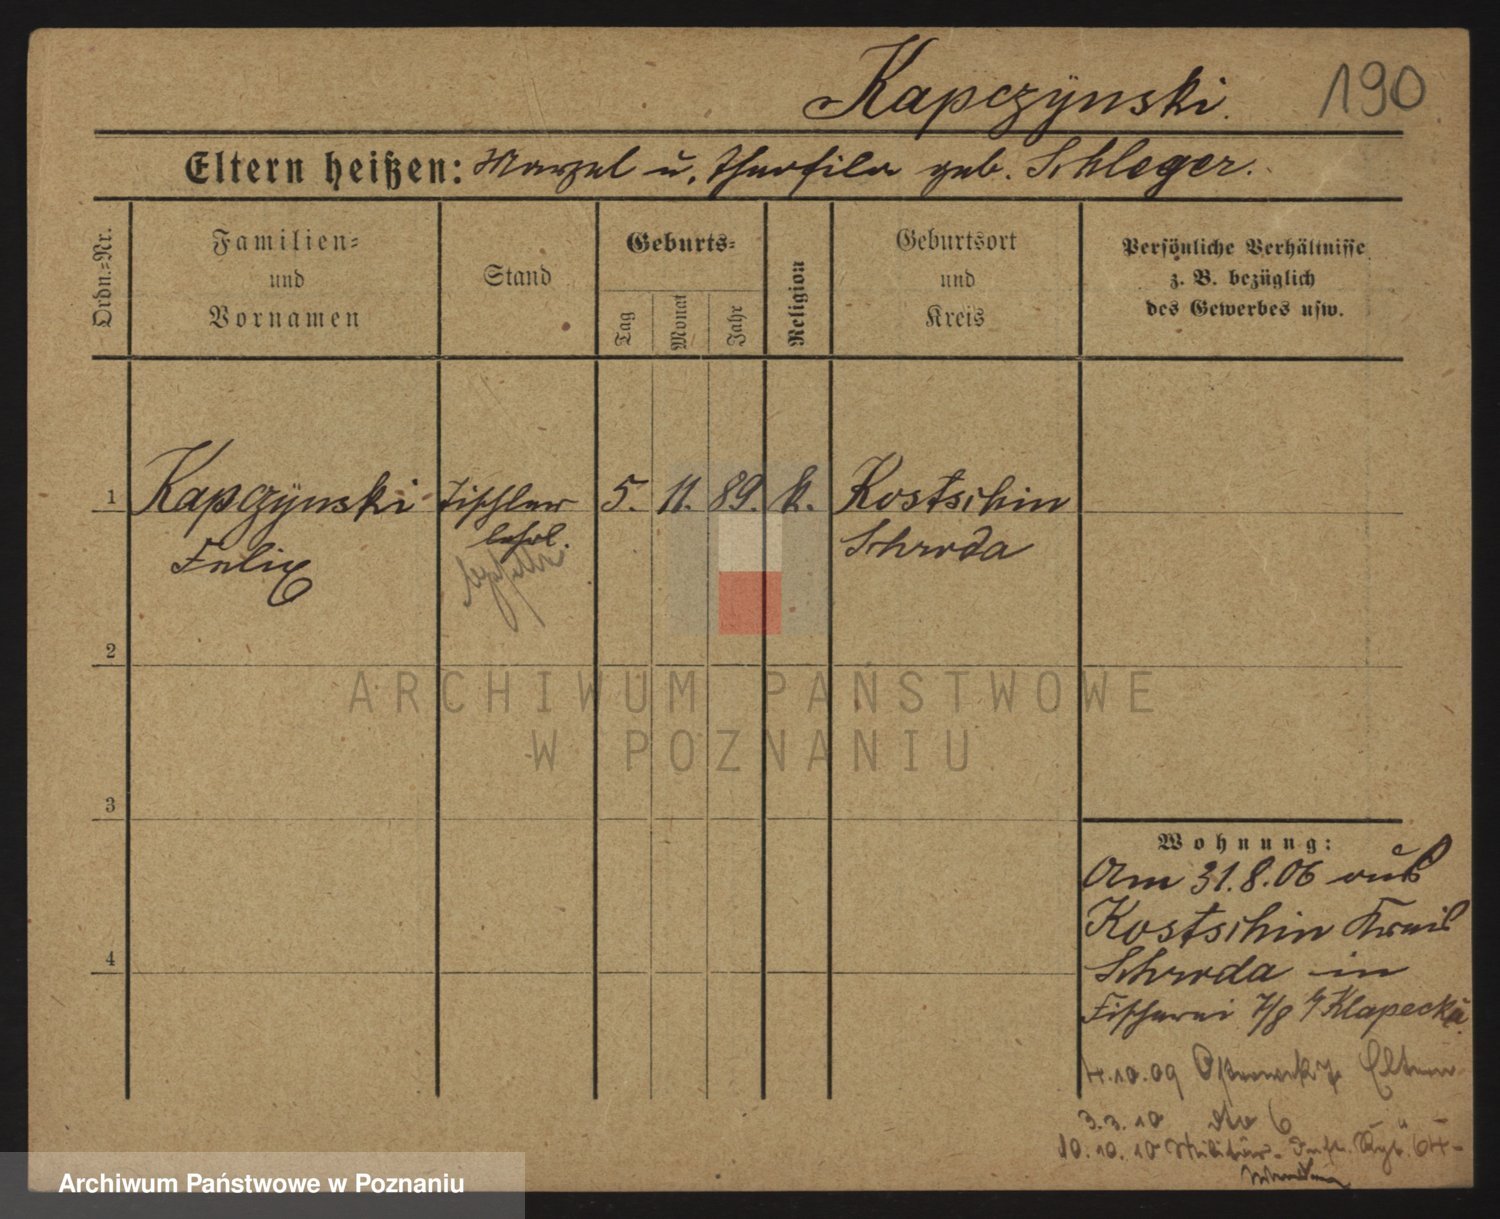 Kapczÿnski. 190
Eltern heißen: Marzel u. Theofila geb. Schleger.
Ordn.=Nr.
Familien=
und
Vornamen
Stand
Geburts=
Tag
Monat
Jahr
Religion
Geburtsort
und
Kreis
Persönliche Verhältnisse
z. B. bezüglich
des Gewerbes usw.
1 Kapczÿnski Tischler 5. 11. 89. k. Kostschin
Felix lehrl. Schroda
2
3
4
ARCHIWUM PAŃSTWOWE
W POZNANIU
Wohnung:
Am 31.8.06 aus
Kostschin Kreis
Schroda in
Fischerei 7/8 Klapecki
4.10.09 Eltern
3.3.10 dto 6
10.10.10 Militär- Inft. Rgt. 64-
Archiwum Państwowe w Poznaniu